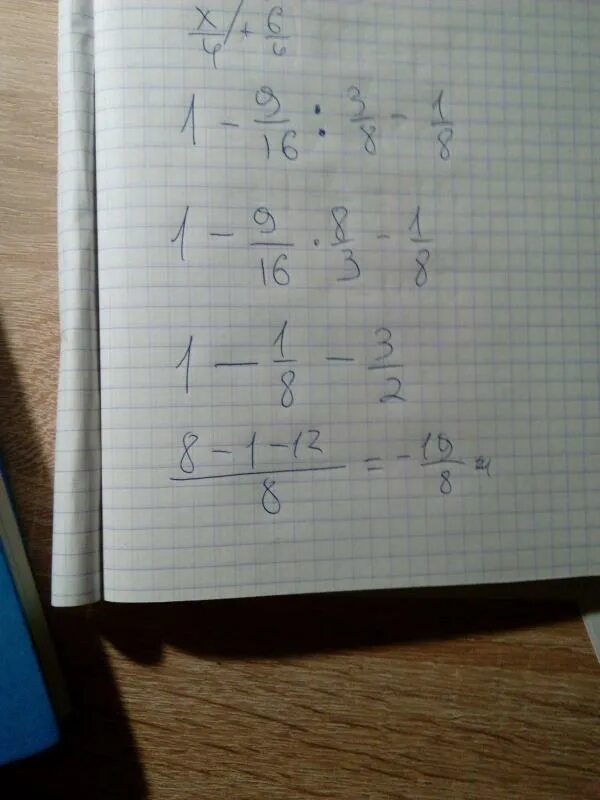 x/4 + 6/
1 - 9/16 : 3/8 - 1/8
1 - 9/16 · 8/3 - 1/8
1 - 1/8 - 3/2
(8 - 1 - 12)/8 = - 19/8